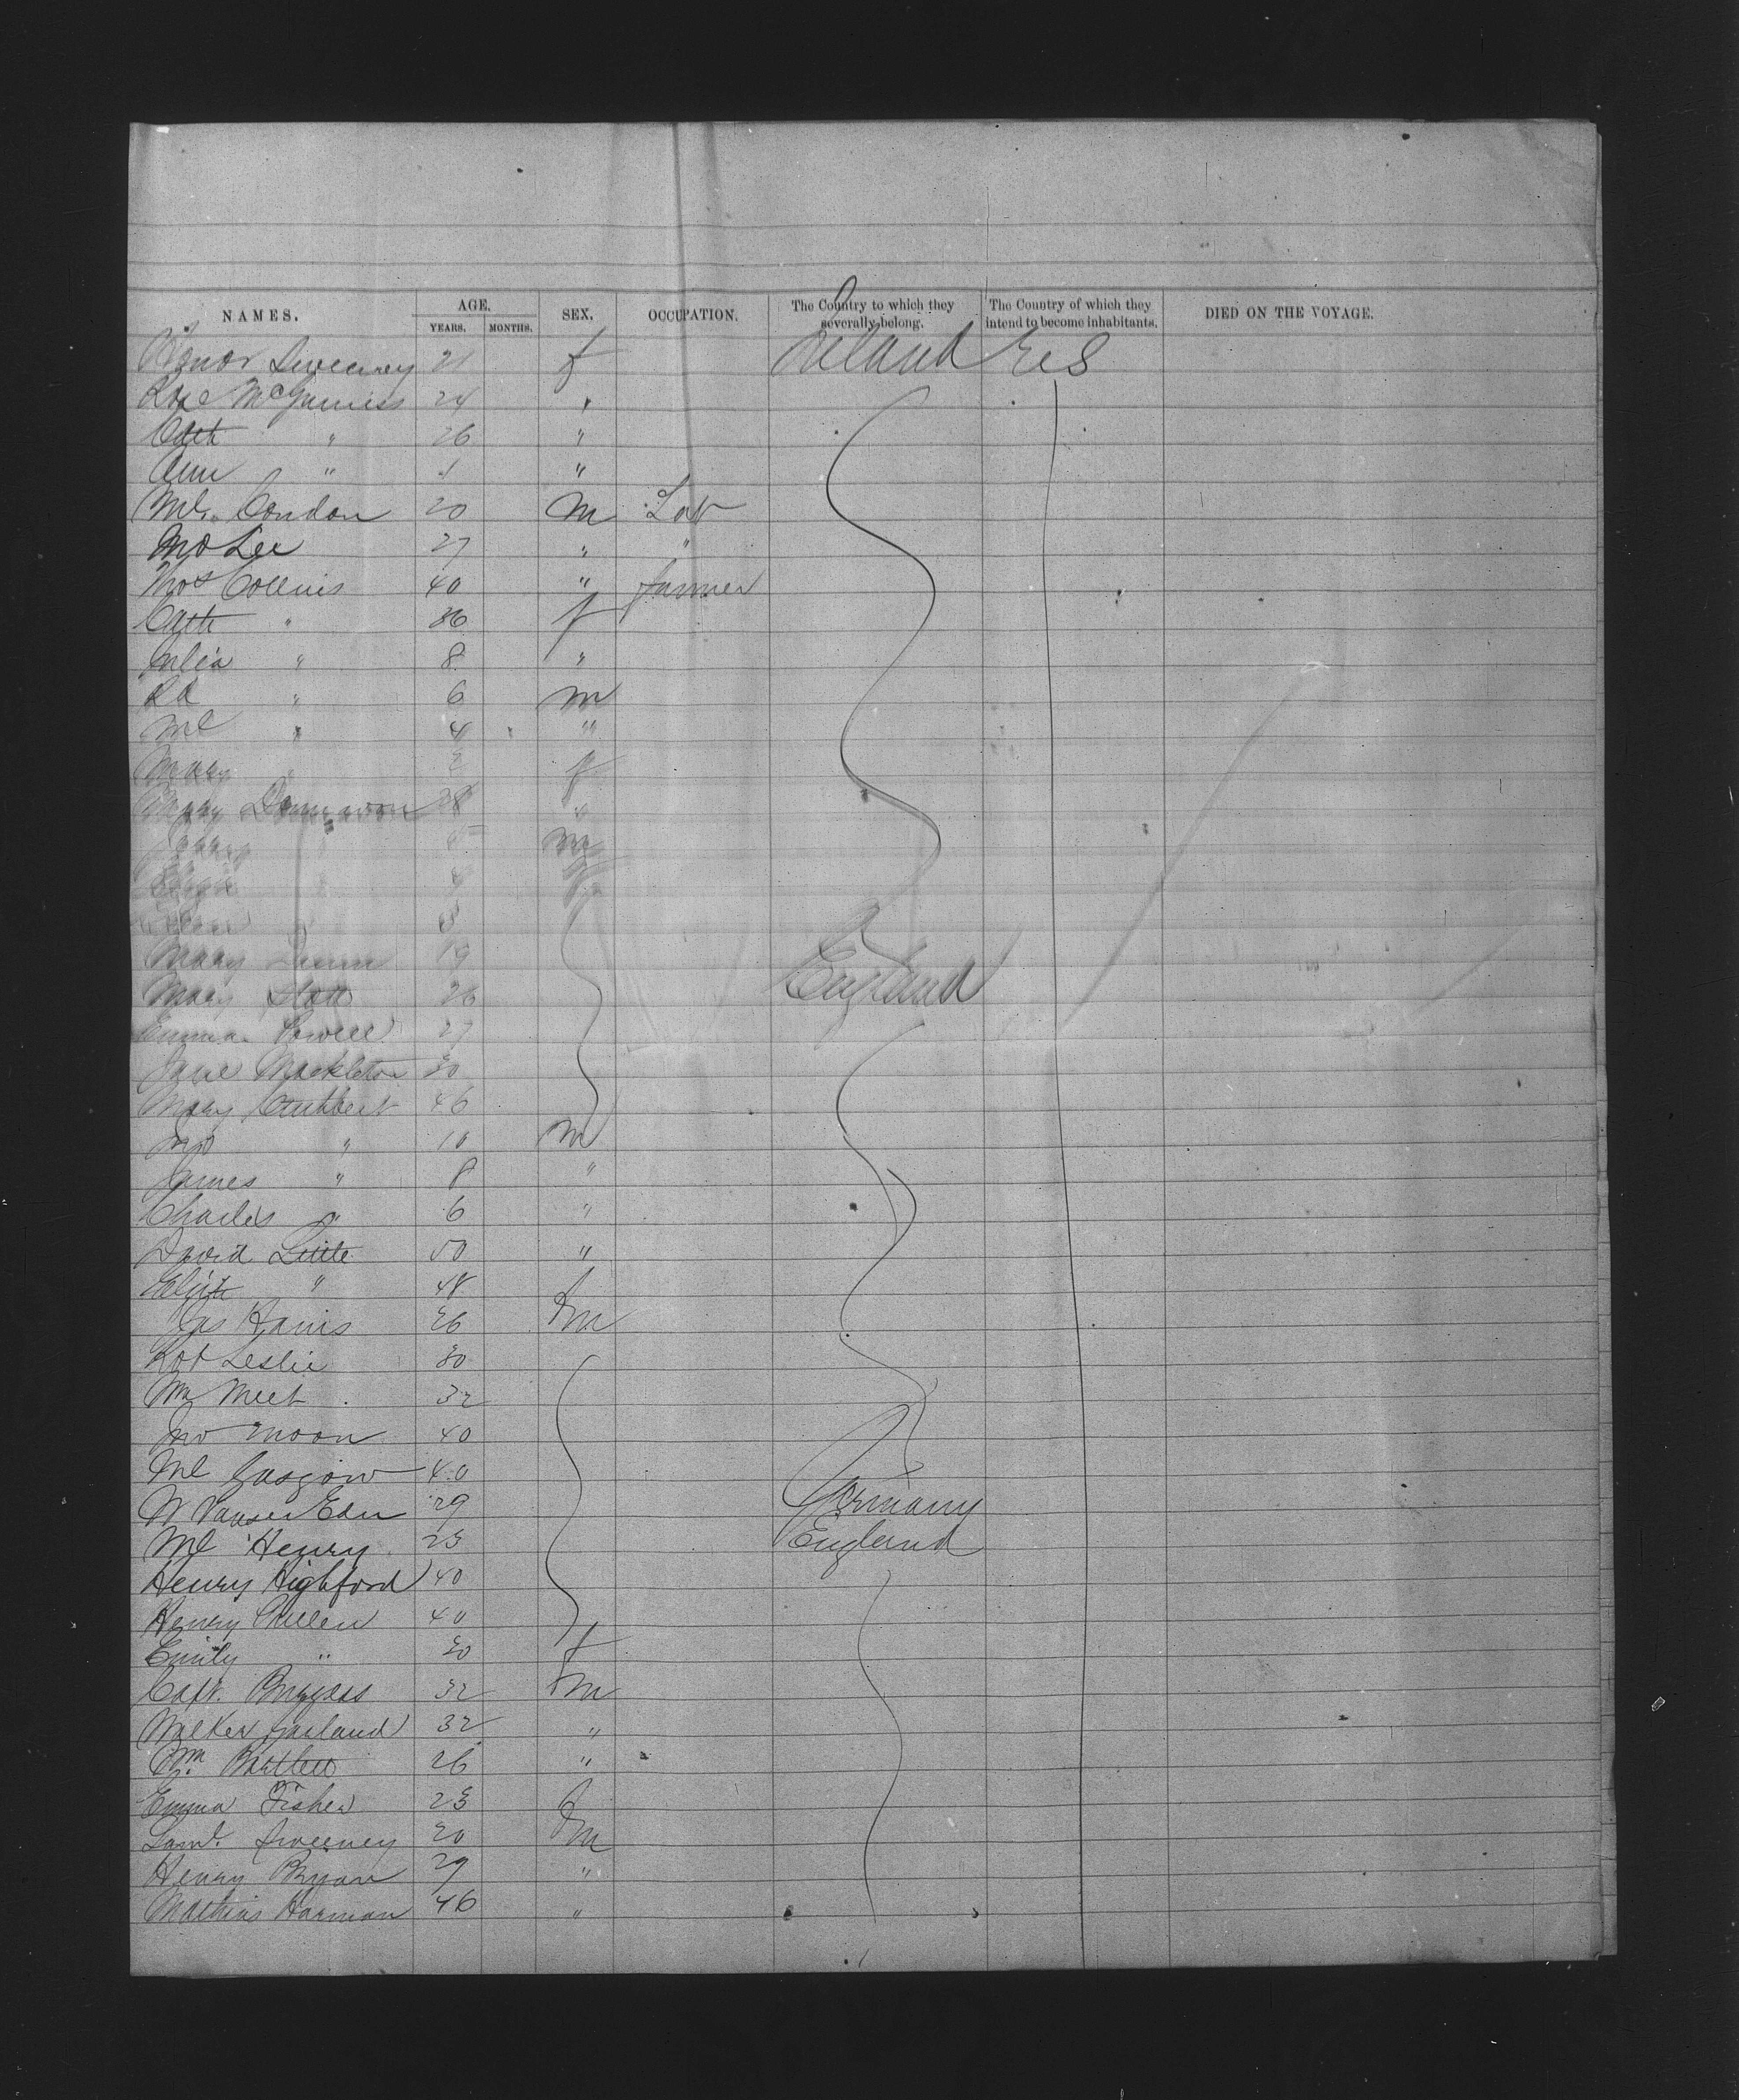 NAMES. AGE. SEX. OCCUPATION. The Country to which they severally belong. The Country of which they intend to become inhabitants. DIED ON THE VOYAGE.
YEARS. MONTHS.
Honor Sweeney 21 f Ireland U S
Rose McGuiness 24 "
Cath " 26 "
Ann " "
Ml. Condon 20 M Lab
Jno Lee 27 " "
Thos Collins 40 " farmer
Cath " 36 f
Julia " 8 "
Rd " 6 m
Ml " 4 "
Mary " f
Mary 28 "
m
4
3
Mary 19
Mary Stott 26 England
Emma Powell 27
Jane Mackleton 30
Mary Cuthbert 46
Jno " 10 M
James " 8 "
Charles " 6 "
David Little 50 "
Eliz " 48 f
Jas Harris 26 m
Robt Leslie 30
Wm Meet 32
Jno Moon 40
Ml Gasgow 40
W 29 Germany
Ml Henry 23 England
Henry Highford 40
Henry Cullen 40
Emily " 30 f
Capt. Burgess 32 m
Walker Garland 32 "
Wm. Bartlett 26 "
Emma Fisher 23 f
Saml. Sweeney 20 m
Henry Bryan 29 "
Mathias Harman 46 "